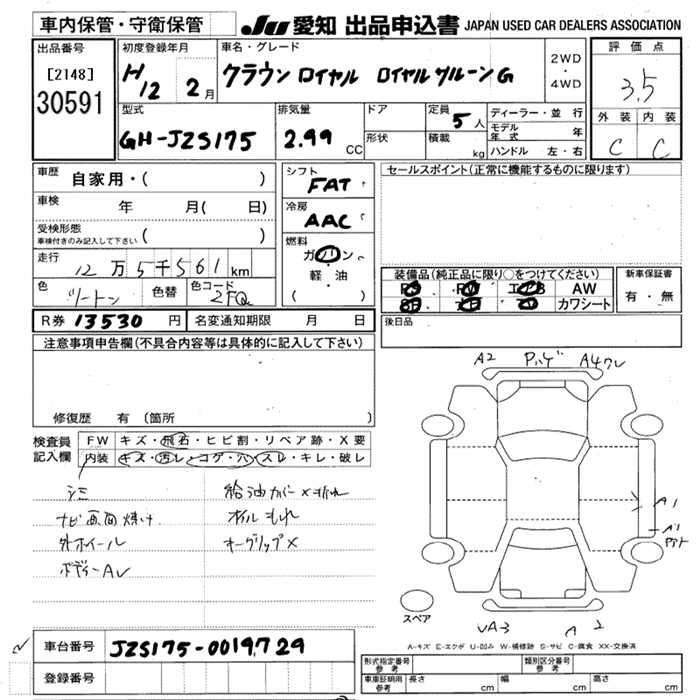 車内保管・守衛保管
JU 愛知 出品申込書 JAPAN USED CAR DEALERS ASSOCIATION
出品番号
[2148]
30591
初度登録年月
H12 2月
車名・グレード
クラウン ロイヤル ロイヤルサルーンG
2WD
・
4WD
評価点
3.5
外装 内装
C C
型式
GH-JZS175
排気量
2.99 CC
ドア
形状
定員 5人
積載 kg
ディーラー・並行
モデル年式 年
ハンドル 左・右
車歴
自家用・( )
車検
年 月( 日)
受検形態
車検付きのみ記入して下さい ( )
走行
12万5千561km
色
ツートン
色替
色コード
2FQ
シフト
FAT
冷房
AAC
燃料
ガソリン
軽・油
( )
セールスポイント(正常に機能するものに限ります)
装備品(純正品に限り○をつけてください)
AW
カワシート
新車保証書
有・無
後日品
R券 13530円
名変通知期限 月 日
注意事項申告欄(不具合内容等は具体的に記入して下さい)
修復歴 有 (箇所 )
検査員
記入欄
FW キズ・飛石・ヒビ割・リペア跡・X要
内装 キズ・汚レ・コゲ・穴・スレ・キレ・破レ
シミ
ナビ画面焼け
外ホイール
ボディーAU
給油カバー×
オイルもれ
キーグリップ×
A2
A4
A1
スペア
UA3
A 2
A-キズ E-エクボ U-凹み W-補修跡 S-サビ C-腐食 XX-交換済
車台番号 JZS175-0019729
登録番号
形式指定番号
参考
類別区分番号
参考
車庫証明用
参考
長さ cm
幅 cm
高さ cm